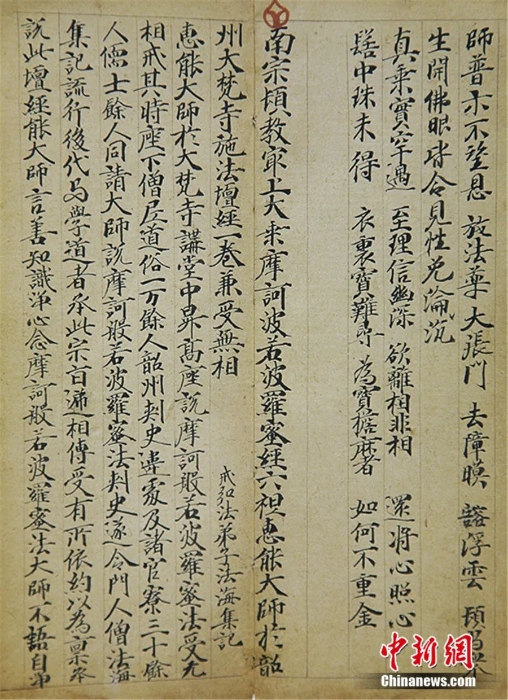 師普示不望恩 放法華大張門 去障曀 豁浮雲 頓
生開佛眼皆合見性免淪沉
真乘實罕遇 至理信幽深 欲離相非相 還將心照心
髻中珠未得 衣裏寶難尋 為寶擔麻者 如何不重金
南宗頓教最上大乘摩訶波若波羅蜜經六祖惠能大師於韶
州大梵寺施法壇經一卷兼受無相
戒弘法弟子法海集記
惠能大師於大梵寺講堂中昇高座說摩訶般若波羅蜜法受无
相戒其時座下僧尼道俗一万餘人韶州刺史違處及諸官寮三十餘
人儒士餘人同請大師說摩訶般若波羅蜜法刺史遂令門人僧法海
集記流行後代与學道者承此宗旨遞相傳受有所依約以為禀承
說此壇經能大師言善知識淨心念摩訶般若波羅蜜法大師不語自
中新網
Chinanews.com